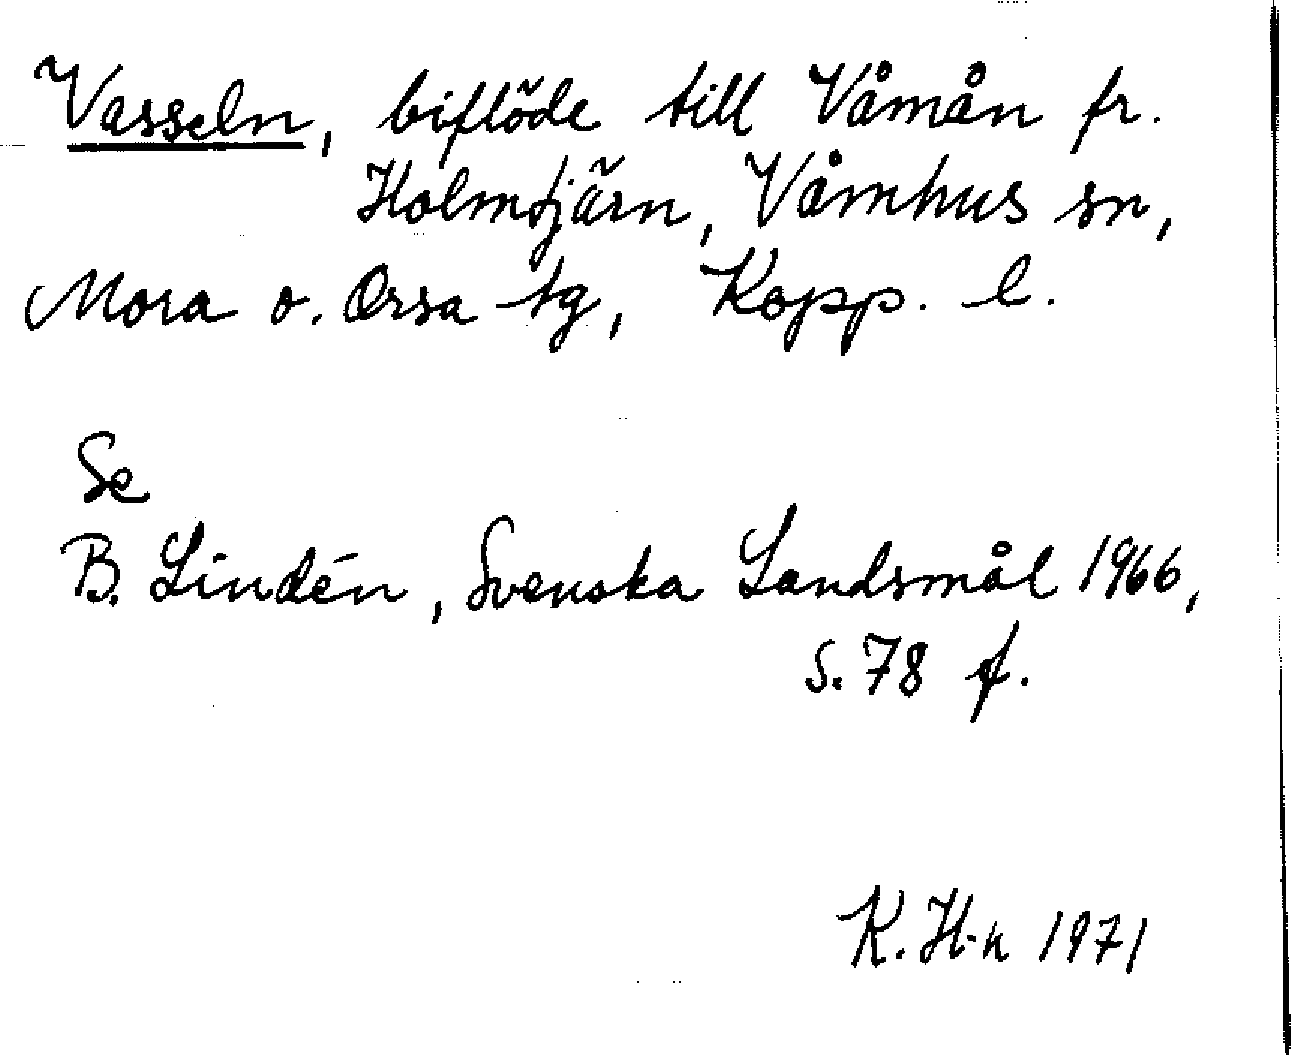 Vasseln, biflöde till Våmån fr.
Holmtjärn, Våmhus sn,
Mora o. Orsa tg, Kopp. l.
Se
B. Lindén, Svenska Landsmål 1966,
s. 78 f.
K. H-n 1971